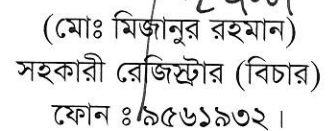 (মোঃ মিজানুর রহমান)
সহকারী রেজিস্ট্রার (বিচার)
ফোন ঃ ৯৫৬১৯৩২ ।